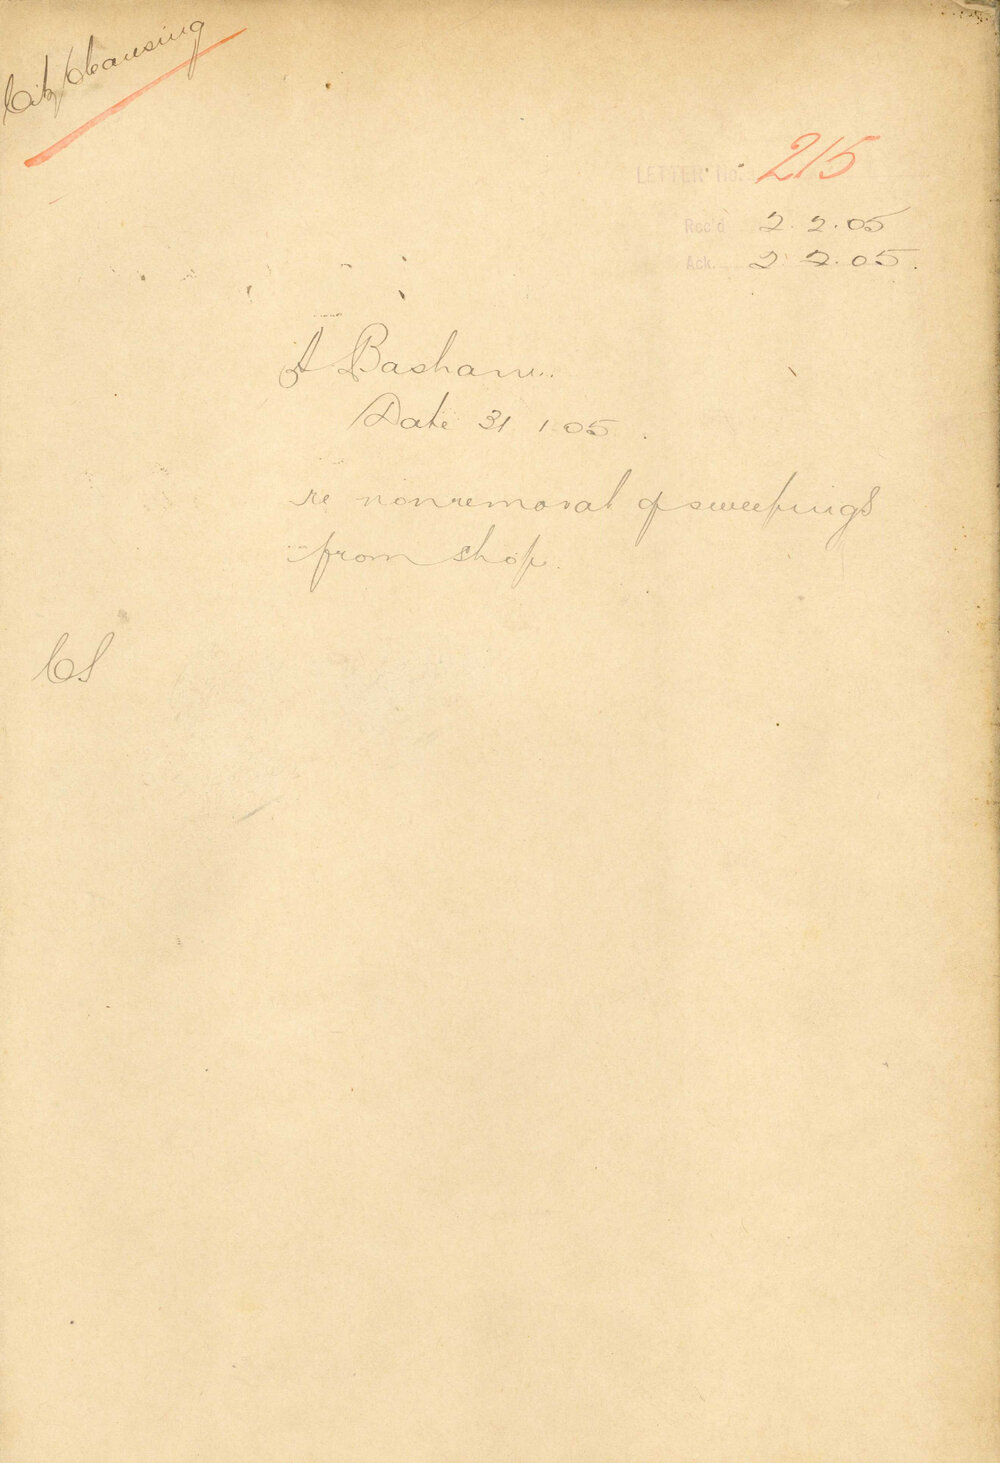 City Cleansing
LETTER No. 215
Rec'd 2.2.05
Ack. 2.2.05.
A Basham.
Date 31.1.05.
re nonremoval of sweepings
from shop.
CS